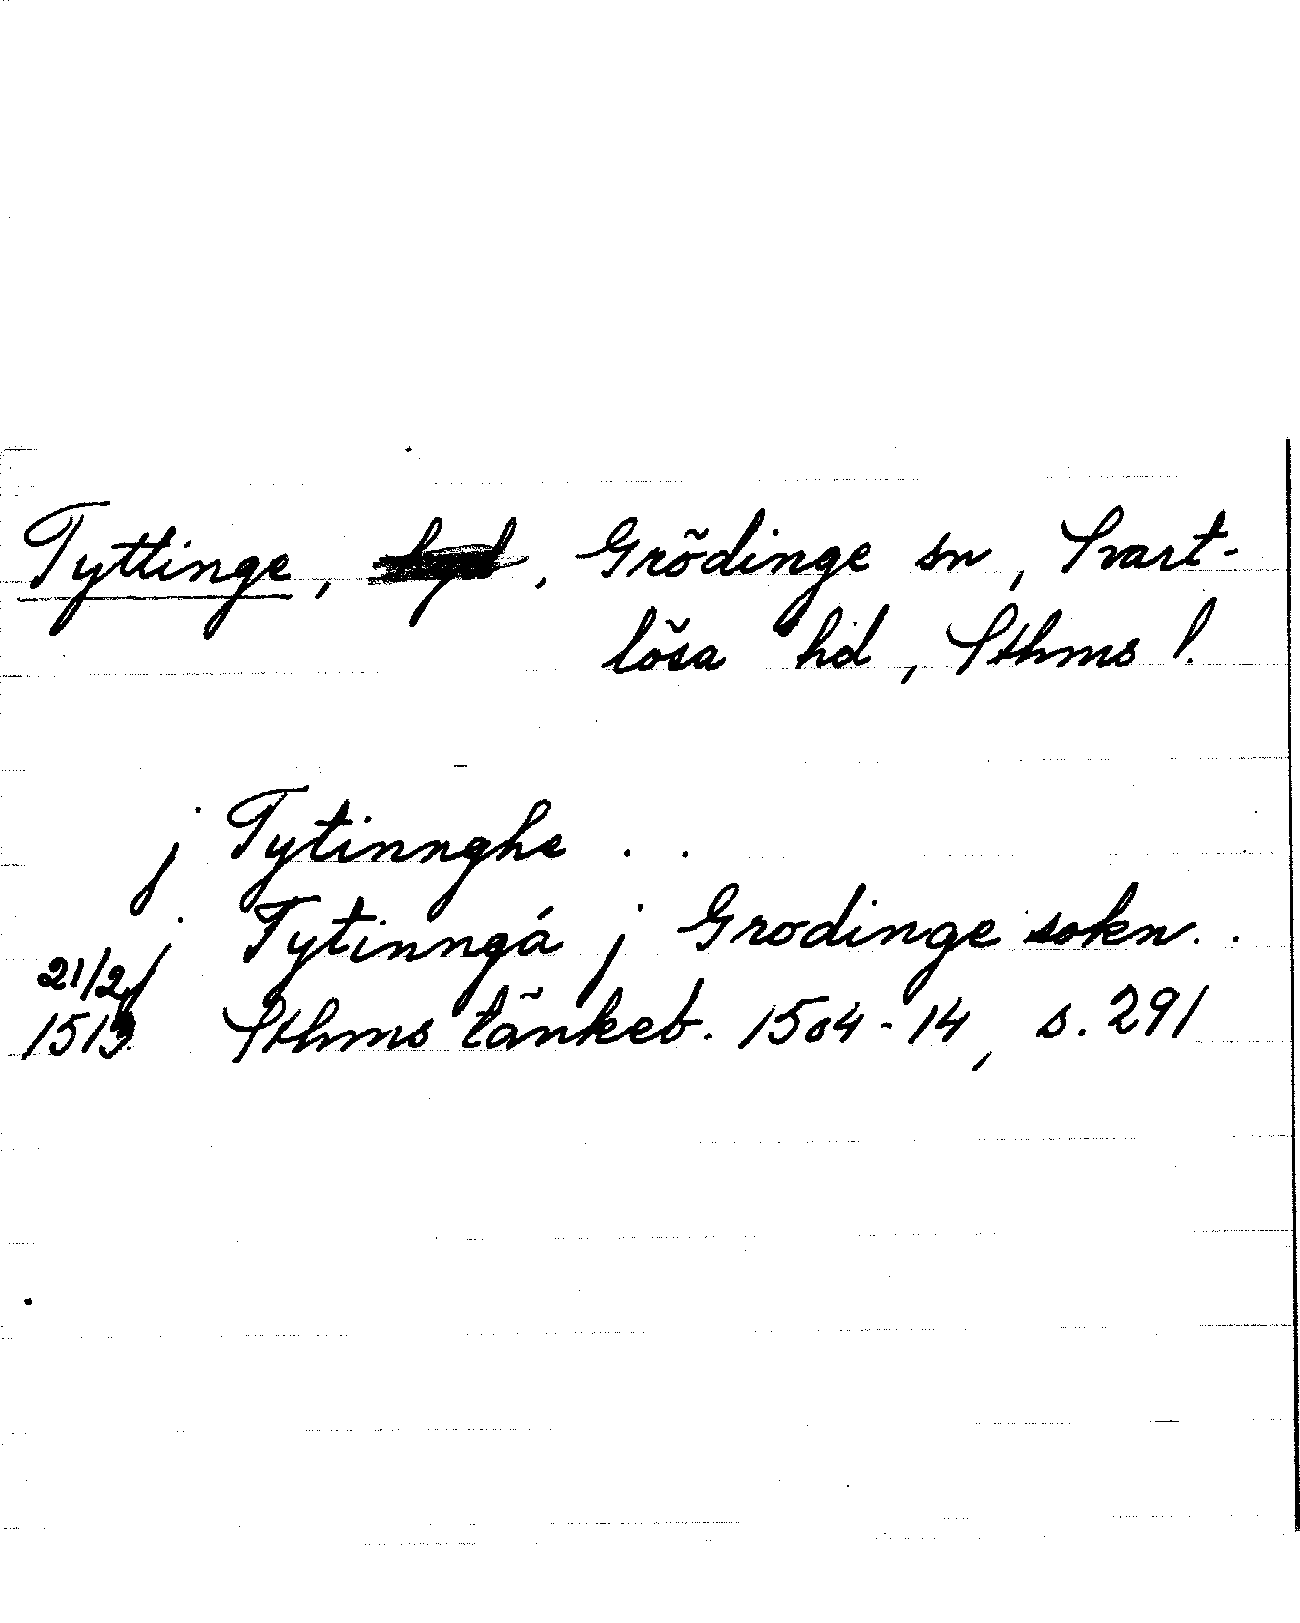 Tyttinge, , Grödinge sn, Svart-
lösa hd, Sthms l.
j Tytinnghe . .
j Tytinngá j Grodinge sokn . .
21/2
1513 Sthms tänkeb. 1504-14, s. 291